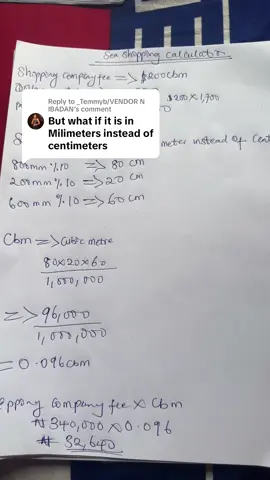 Sea Shopping Calculation
Shopping Company fee => $200cbm
$200 x 1,700
Reply to _Temmyb/VENDOR N
IBADAN's comment
But what if it is in
Milimeters instead of
centimeters
meter instead of Cent
800mm % 10 => 80 cm
200mm % 10 => 20 cm
600mm % 10 => 60 cm
Cbm => Cubic metre
80x20x60
1,000,000
=> 96,000
1,000,000
= 0.096cbm
Company fee x Cbm
₦340,000 x 0.096
₦ 32,640